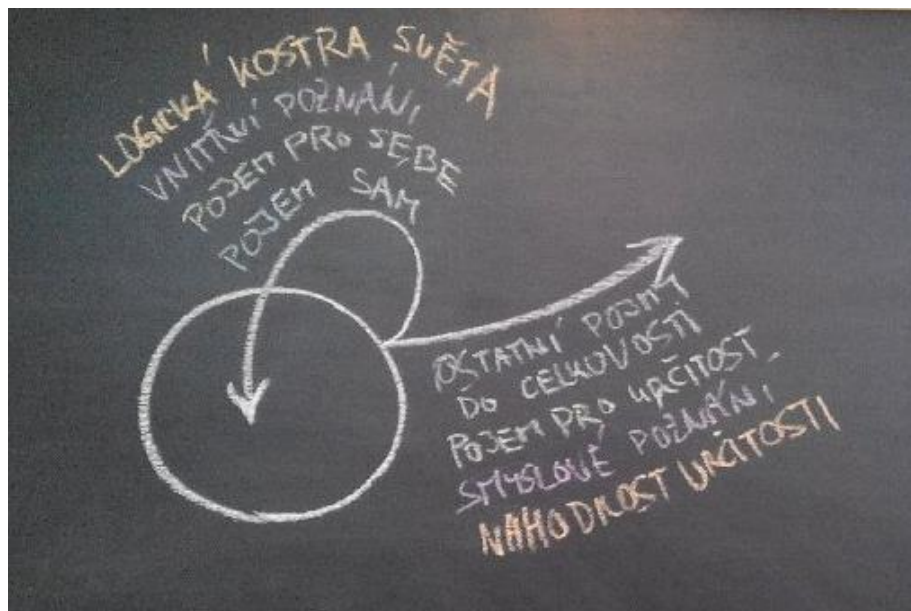 LOGICKÁ KOSTRA SVĚTA
VNITŘNÍ POZNÁNÍ
POJEM PRO SEBE
POJEM SAM
OSTATNÍ POJMY
DO CELKOVOSTI
POJEM PRO URČITOST
SMYSLOVÉ POZNÁNÍ
NÁHODNOST URČITOSTI